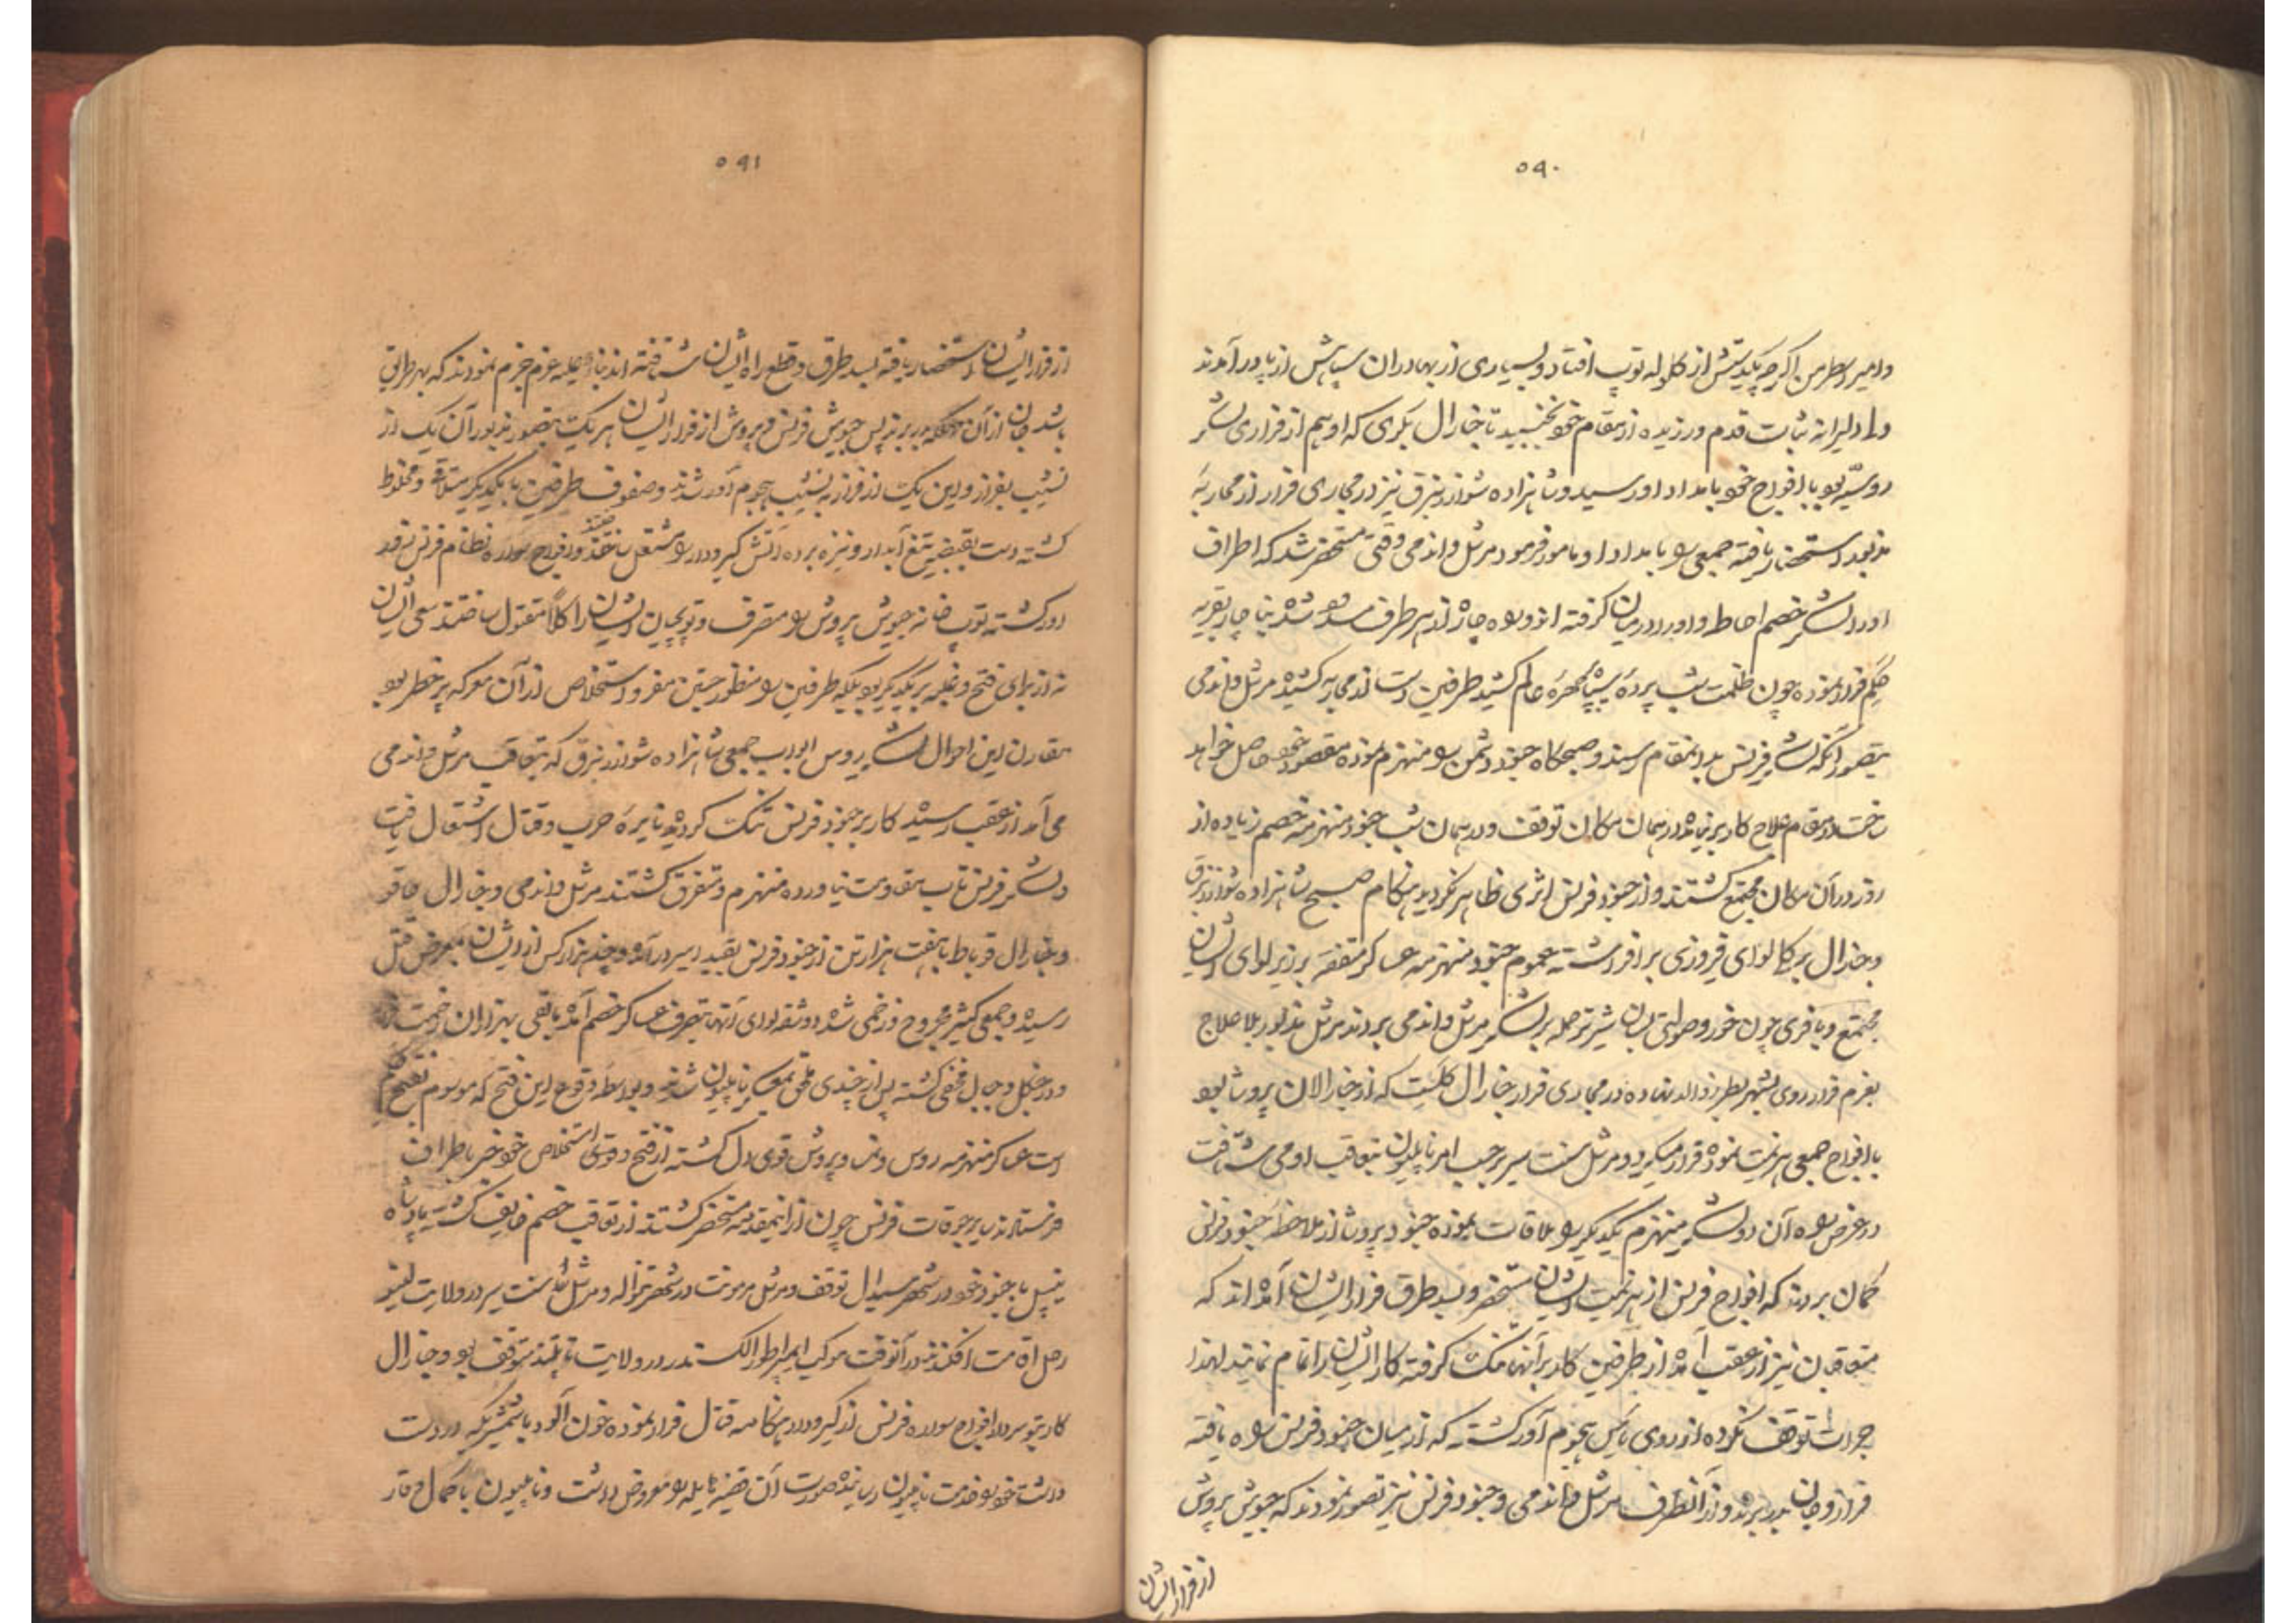 ۵۹۰
وامیر اوطرمن اگرچه یکدستش از گلوله توپ افتاد و بسیاری از بهادران سپاهش از پا درآمدند
ولی دلیرانه ثبات قدم ورزیده از مقام خود نجنبید تا جنارال بکری که او هم از فراری لشکر
روسیه بود با افواج خود بامداد او رسید و شاهزاده شوارزنبرق نیز در مجاری فرار از محاربه
مزبوره استحضار یافته جمعی را بامداد او مامور فرمود مرشل واندمی وقتی مستحضر شد که اطراف
او را لشکر خصم احاطه و او را در میان گرفته اند و راه چاره از هر طرف مسدود شده بناچار بقریه
حکم فرار نموده چون ظلمت شب پرده سیاه بچهره عالم کشید طرفین دست از محاربه کشیده مرشل واندمی
بتصور آنکه لشکر فرنس بدانمقام رسیده و صبحگاه جنود دشمن را منهزم نموده مقصود خود حاصل خواهد
ساخت در مقام علاج کار برنیامده در همان مکان توقف و در همان شب جنود منهزمه خصم زیاده از
روز در آن مکان مجتمع گشتند و از جنود فرنس اثری ظاهر نگردید هنگام صبح شاهزاده شوارزنبرق
وجنرال برکلا لوای فیروزی برافراشته عموم جنود منهزمه عساکر متفقه بر زیر لوای ایشان
مجتمع و با فری چون خور و صولتی بسان شیر نر حمله بر لشکر مرشل واندمی بردند مرشل مذبور بلاعلاج
بعزم فرار روی بشهر بطرزوالد نهاده در مجاری فرار جنارال کلیست که از جنارالان پروشا بود
با افواج جمعی هزیمت نموده فرار میکرد و مرشل سنت سیر برحسب امر ناپلیون بتعاقب او می شتافت
در عرض راه آن دو لشکر منهزم یکدیگر را ملاقات نموده جنود پروشا از ملاحظه جنود فرنس
گمان بردند که افواج فرنس از هزیمت ایشان مستحضر و بسد طرق فرار ایشان آمده اند که
متعاقبان نیز از عقب آمده از طرفین کار بر آنها تنک گرفته کار ایشان را تمام نمایند لهذا
جرات توقف نکرده از روی یأس هجوم آور گشته که از میان جنود فرنس راه یافته
فرار و جان بدر برند و از آنطرف مرشل واندمی و جنود فرنس نیز تصور نمودند که جیوش پروش
از فرار ایشان
۵۹۱
از فرار ایشان استحضار یافته بسد طرق و قطع راه ایشان شتافته اند بناءعلیه عزم جزم نمودند که بهر طریق
باشد جان از آن مهلکه بدر برند پس جیوش فرنس و پروش از فرار ایشان هر یک بتصور مزبور آن یک از
نشیب بفراز و این یک از فراز به نشیب هجوم آور شدند و صفوف طرفین با یکدیگر متلاقی و مخلوط
گشته دست بقبضه تیغ آبدار و نیزه برده آتش گیرودار را مشتعل ساختند و افواج سواره نظام فرنس
آور گشته توپ خانه جیوش پروش را متصرف و توپچیان ایشان را کلا مقتول ساختند سعی ایشان
نه از برای فتح و غلبه بر یکدیگر بود بلکه طرفین را منظور جستن مفر و استخلاص از آن معرکه پرخطر بود
مقارن این احوال لشکر روس با جمعی شاهزاده شوارزنبرق که بتعاقب مرشل واندمی
می آمد از عقب رسیده کار بر جنود فرنس تنک گردیده نایره حرب و قتال اشتعال یافت
و لشکر فرنس تاب مقاومت نیاورده منهزم و متفرق گشتند مرشل واندمی و جنارال هاقو
و جنارال قویاط با هفت هزار تن از جنود فرنس بقید اسیر درآمده و چند هزار کس از ایشان بمعرض قتل
رسیده و جمعی کثیر مجروح و زخمی شده و شقه لوای آنها بتصرف عساکر خصم آمده باقی بهزاران زحمت
در جنگل و جبال مخفی گشته پس از چندی ملحق بمعسکر ناپلیون شدند و بواسطه وقوع این فتح که موسوم بفتح
است عساکر منهزمه روس و نمسا و پروش قوی دل گشته از فتح و استخلاص خود خبر باطراف
فرستادند سایر جوقات فرنس چون از اینمقدمه مستحضر گشتند از تعاقب خصم خایف گشته پادشاه
نیپل با جنود خود در شهر سیدال توقف و مرشل مرمونت در شهر تنواله و مرشل سنت سیر در ولایت لبنو
رحل اقامت افکندند در آنوقت موکب ایمپراطور الکسندر در ولایت تپلیتز متوقف بود و جنارال
کاربتو سردار افواج سواره فرنس از گیرودار هنگامه قتال فرار نموده خون آلود با شمشیری که در دست
داشت خود را بخدمت ناپلیون رسانیده صورت آن قضیه هایله را معروض داشت و ناپلیون با کمال وقار